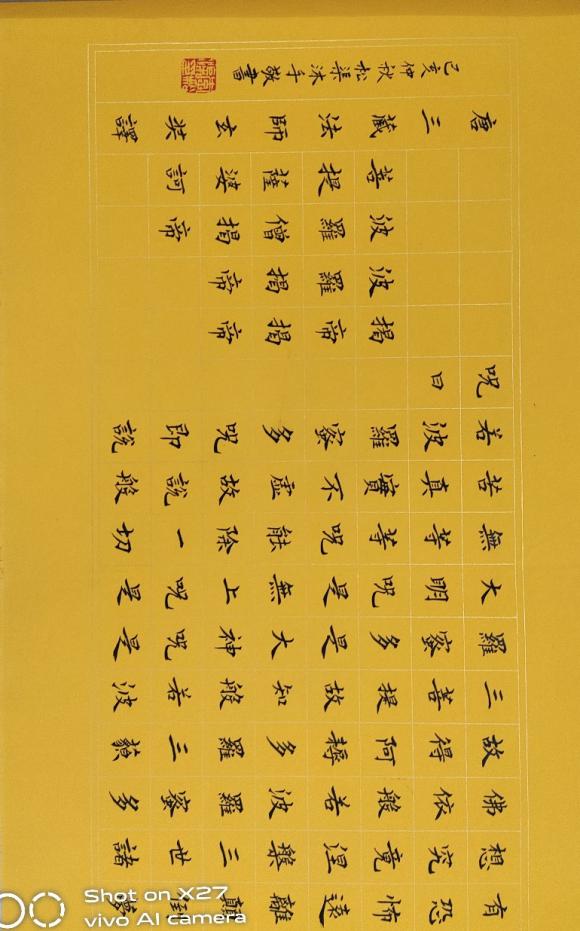 有恐怖遠離顛倒夢
想究竟涅槃三世諸
佛依般若波羅蜜多
故得阿耨多羅三藐
三菩提故知般若波
羅蜜多是大神呪是
大明呪是無上呪是
無等等呪能除一切
苦真實不虛故說般
若波羅蜜多呪即說
呪曰
揭帝揭帝
波羅揭帝
波羅僧揭帝
菩提薩婆訶
唐三藏法師玄奘譯
己亥仲秋松渠沐手敬書
Shot on X27
vivo AI camera